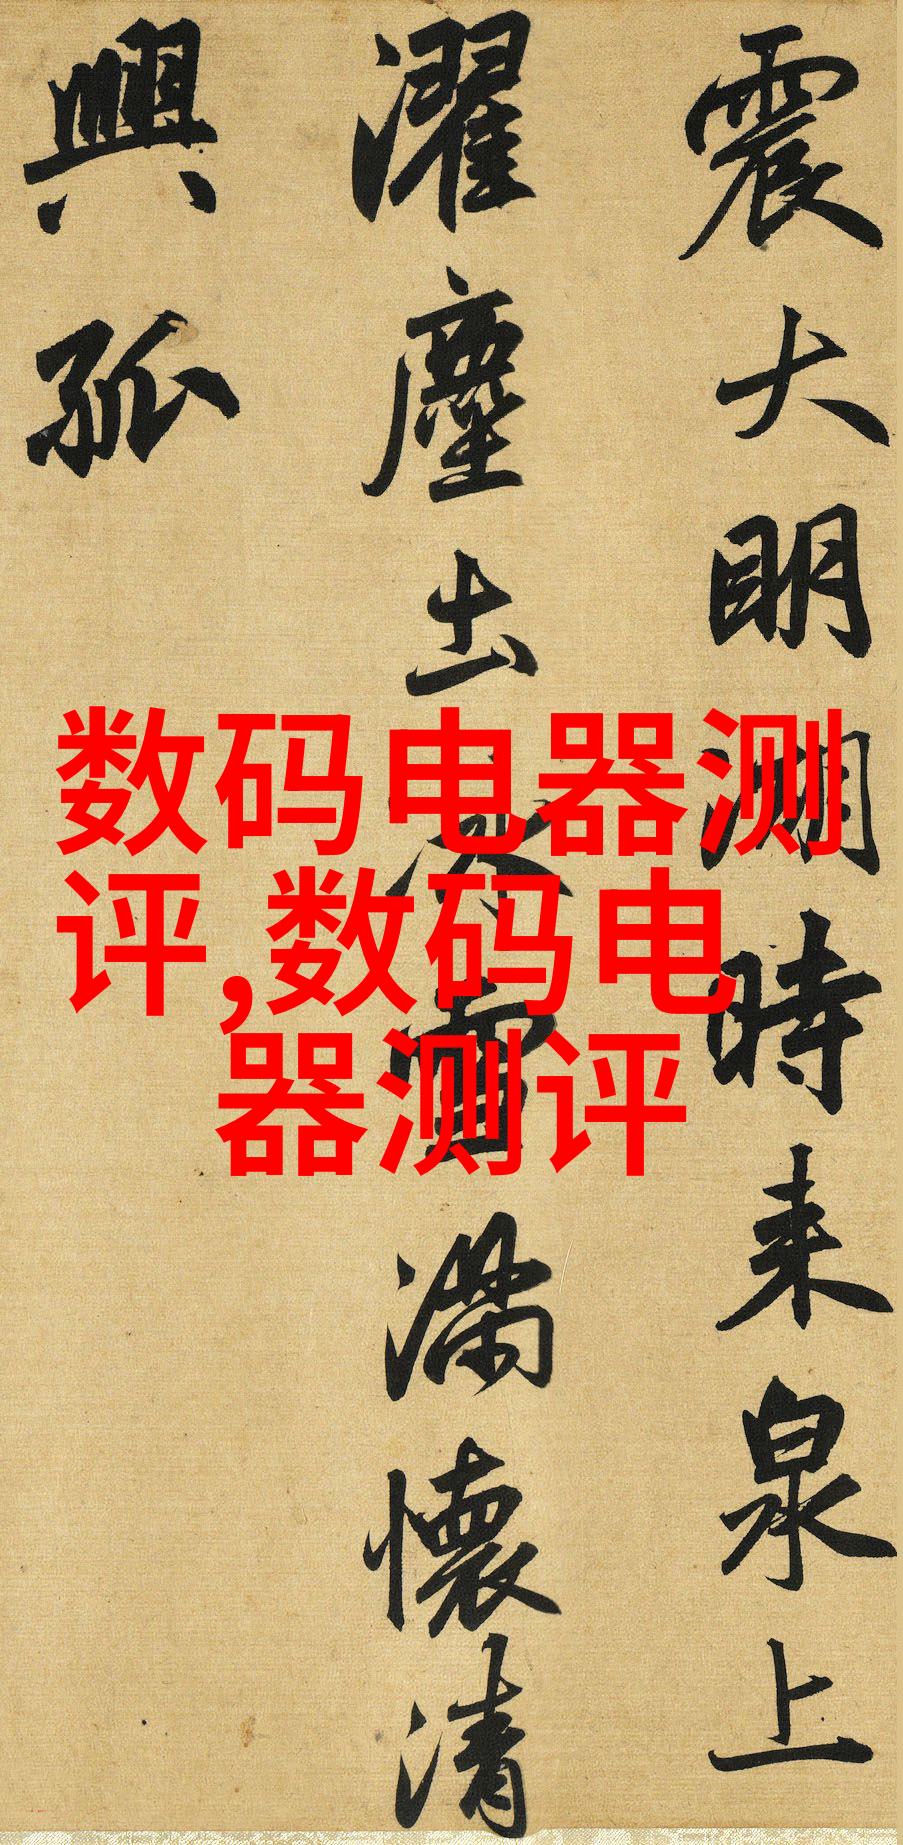 震大明湖時来泉上
濯塵出冰雪滿懷清
興孤
数码电器测
评,数码电
器测评